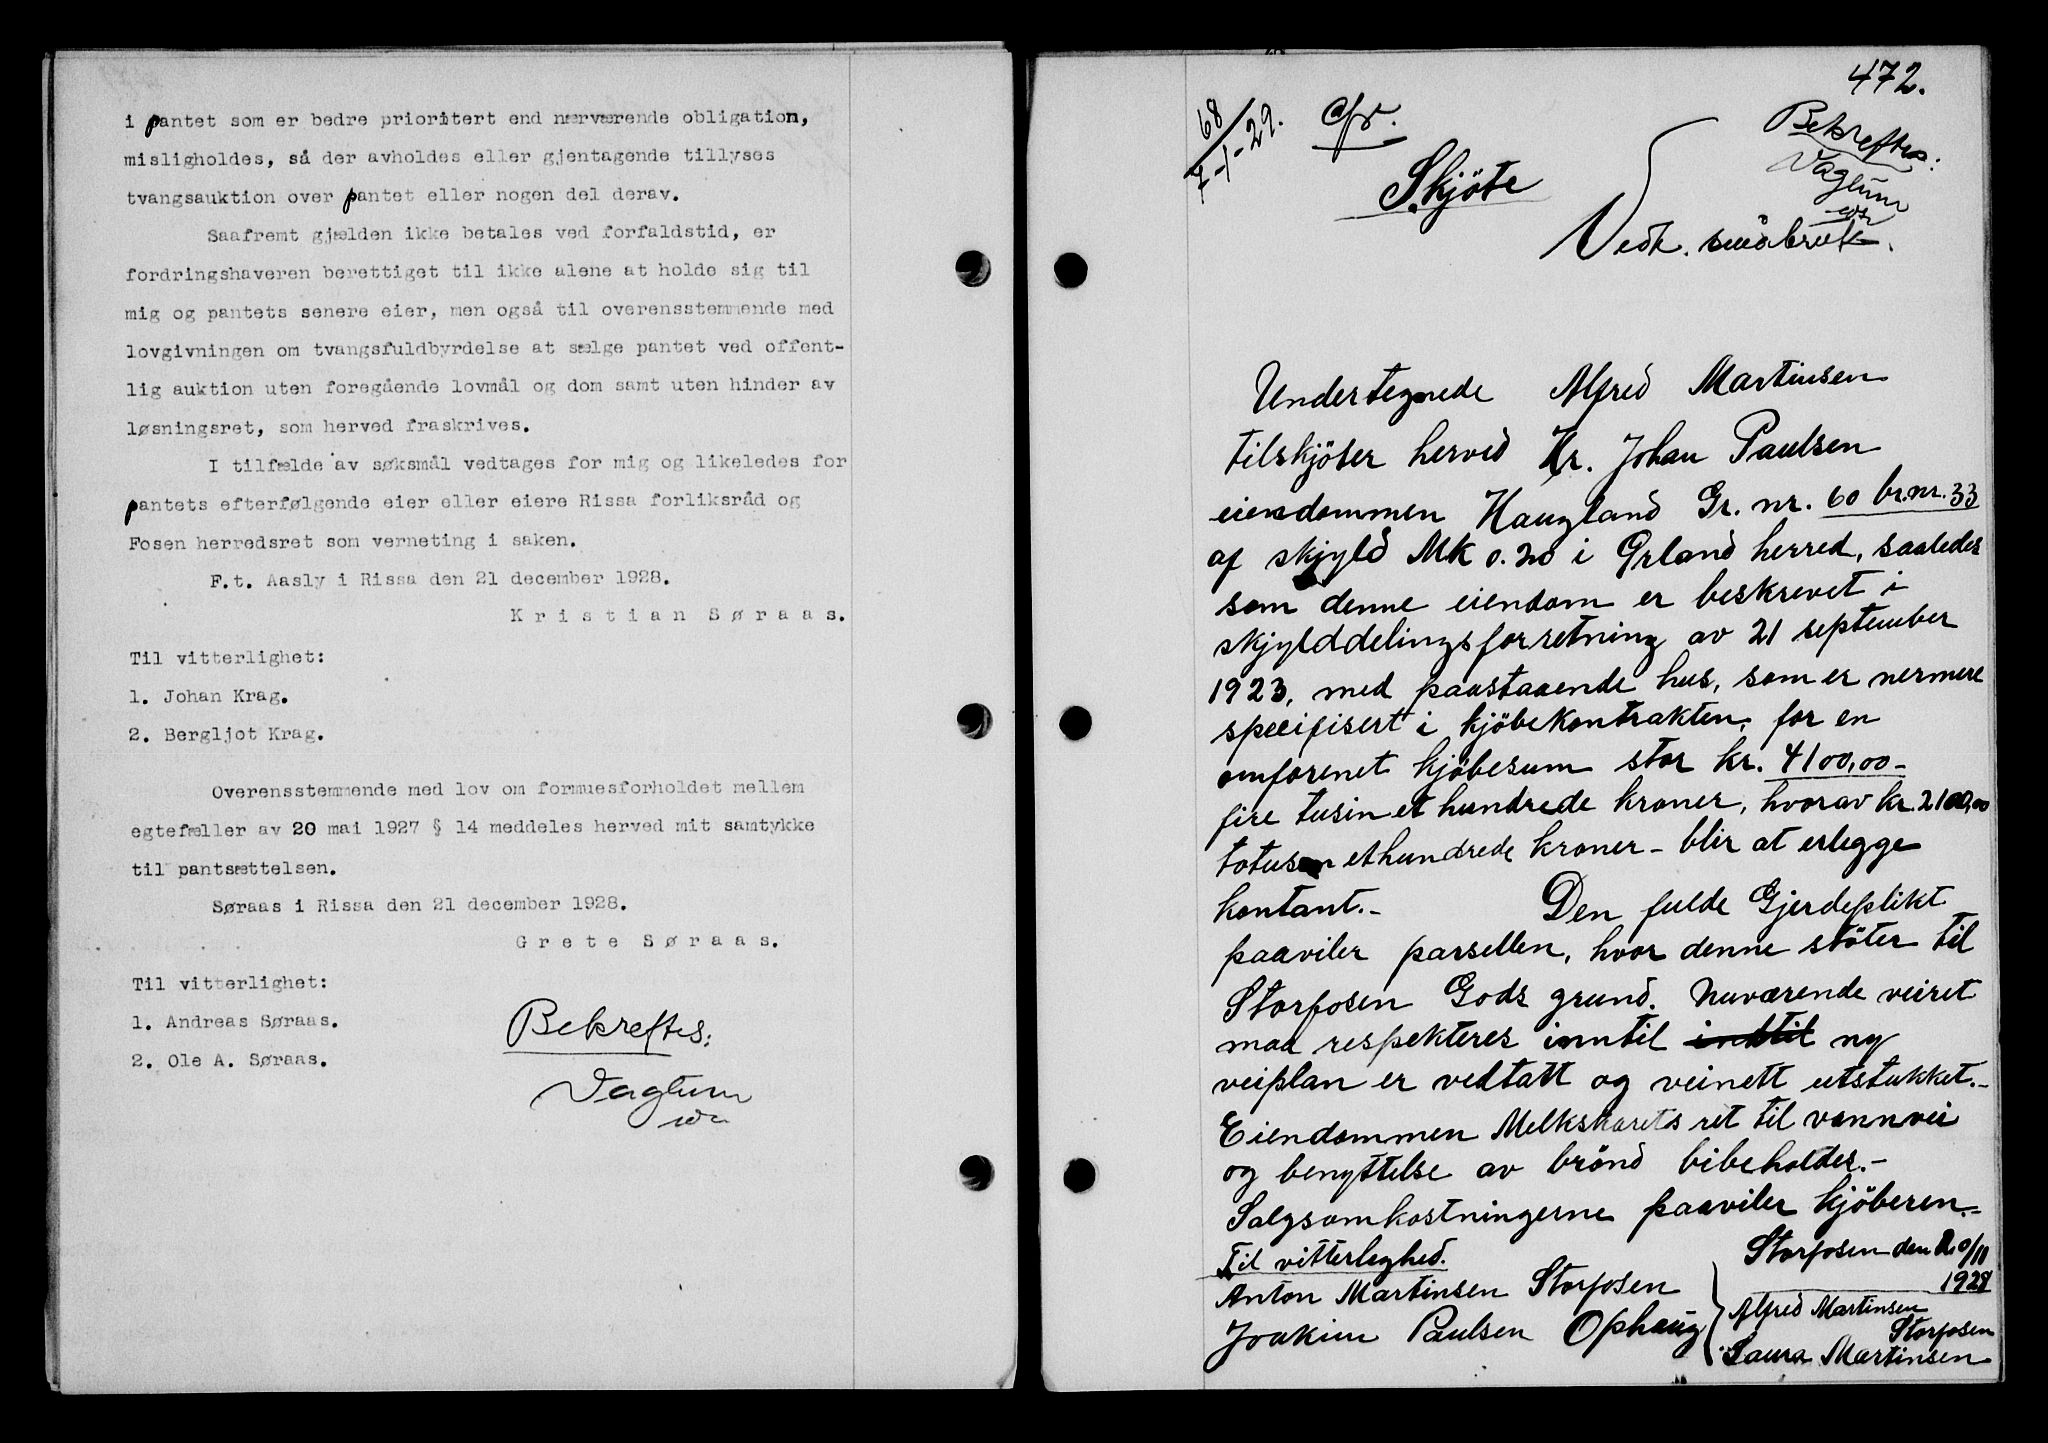 i pantet som er bedre prioritert end nærværende obligation,
misligholdes, så der avholdes eller gjentagende tillyses
tvangsauktion over pantet eller nogen del derav.
Saafremt gjælden ikke betales ved forfaldstid, er
fordringshaveren berettiget til ikke alene at holde sig til
mig og pantets senere eier, men også til overensstemmende med
lovgivningen om tvangsfuldbyrdelse at sælge pantet ved offent-
lig auktion uten foregående lovmål og dom samt uten hinder av
løsningsret, som herved fraskrives.
I tilfælde av søksmål vedtages for mig og likeledes for
pantets efterfølgende eier eller eiere Rissa forliksråd og
Fosen herredsret som verneting i saken.
F.t. Aasly i Rissa den 21 december 1928.
Kristian Søraas.
Til vitterlighet:
1. Johan Krag.
2. Bergljot Krag.
Overensstemmende med lov om formuesforholdet mellem
egtefæller av 20 mai 1927 § 14 meddeles herved mit samtykke
til pantsættelsen.
Søraas i Rissa den 21 december 1928.
Grete Søraas.
Til vitterlighet:
1. Andreas Søraas.
2. Ole A. Søraas.
Bekreftes:
Vaglum
472.
68/7-1-29.
Bekreftes:
Vaglum
Skjöte
Vedk. småbruk.
Undertegnede Alfred Martinsen
tilskjöter herved Hr. Johan Paulsen
eiendommen Haugland Gr. nr. 60 br.nr. 33
af skyld Mk 0.20 i Ørland herred, saaledes
som denne eiendom er beskrevet i
skylddelingsforretning av 21 september
1923, med paastaaende hus, som er nermere
specifisert i kjöbekontrakten, for en
omforenet kjöbesum stor kr. 4100,00-
fire tusin et hundrede kroner, hvorav kr. 2100,00
totusen ethundrede kroner - blir at erlegge
kontant.- Den fulde Gjerdeplikt
paaviler parsellen, hvor denne stöter til
Storfosen Gods grund. Nuværende veiret
maa respekteres inntil inntil ny
veiplan er vedtatt og veinett utstukket.-
Eiendommen Melkskarets ret til vannvei
og benyttelse av brönd bibeholdes.-
Salgsomkostningerne paaviler kjöberen.-
Storfosen den 20/11
1928
Til vitterleghed.
Anton Martinsen Storfosen
Joakim Paulsen Ophaug
Alfred Martinsen
Storfosen
Laura Martinsen